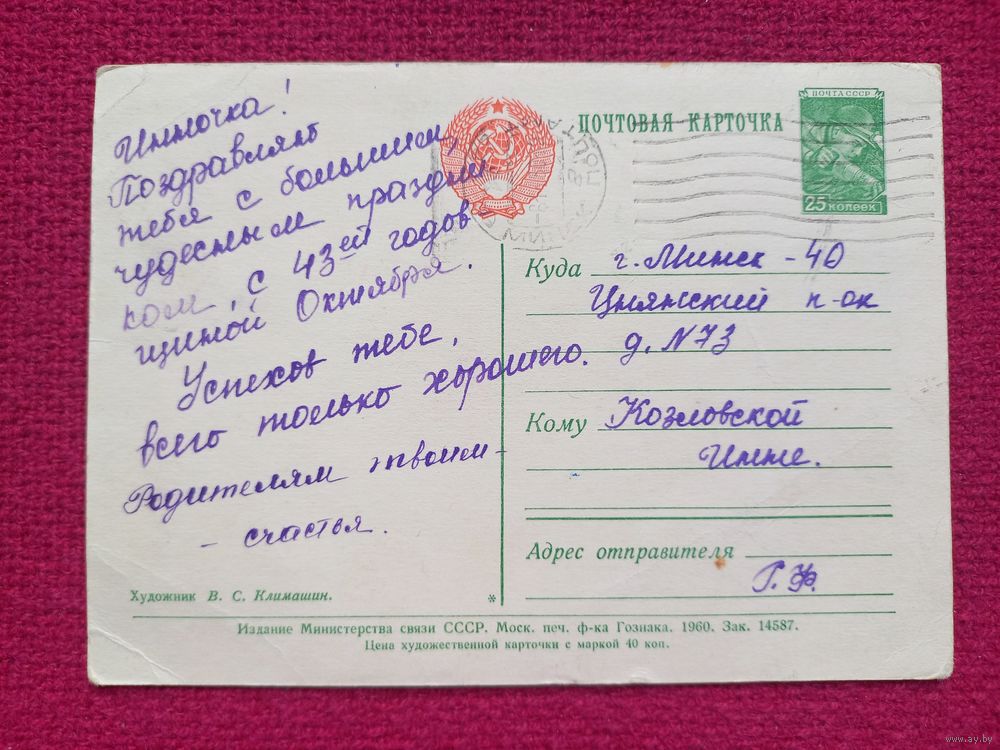 Инночка!
Поздравляю
тебя с большим,
чудесным праздни-
ком, с 43ей годов-
щиной Октября.
Успехов тебе,
всего только хорошего.
Родителям твоим –
– счастья.
Художник В. С. Климашин.
ПОЧТОВАЯ КАРТОЧКА
ПОЧТА СССР
25 КОПЕЕК
Куда г. Минск – 40
Цнянский п-ок
д. N 73
Кому Козловской
Инне.
Адрес отправителя
Г. Ф.
*
Издание Министерства связи СССР. Моск. печ. ф-ка Гознака. 1960. Зак. 14587.
Цена художественной карточки с маркой 40 коп.
www.ay.by